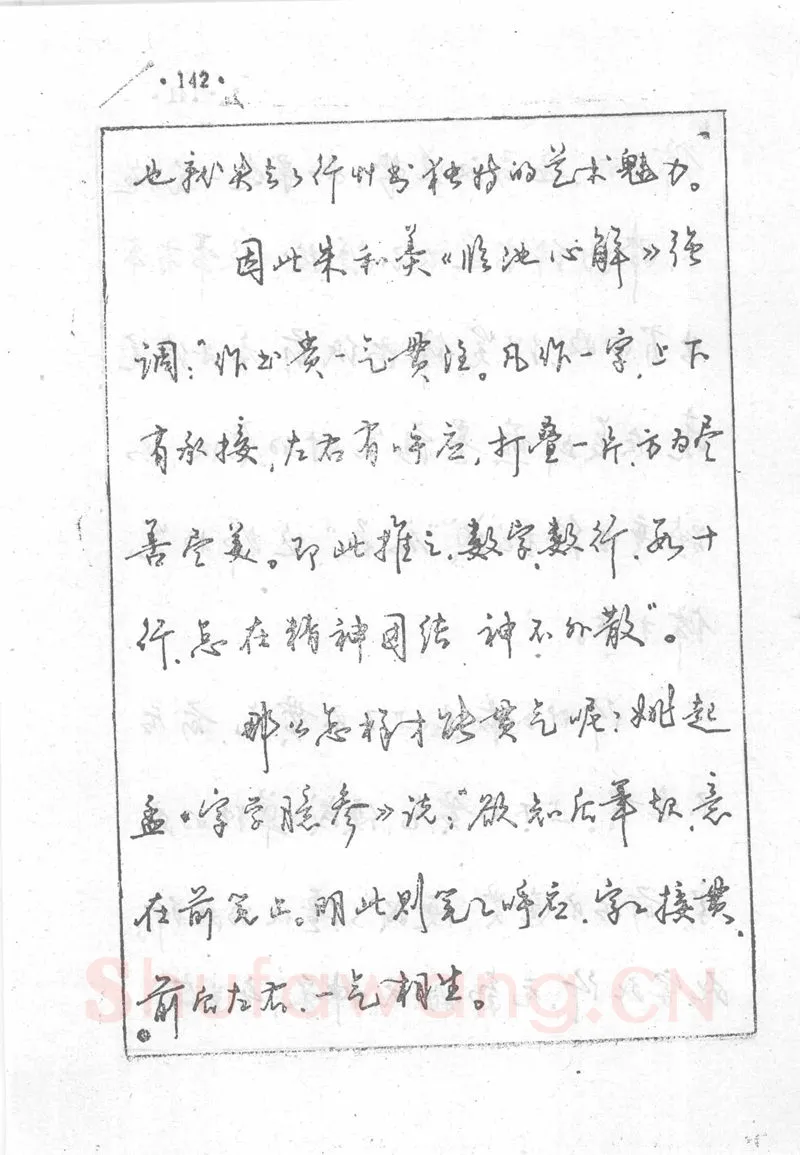 ·142·
也就失去了行草书独特的艺术魅力。
因此朱和羹《临池心解》强
调:“作书贵一气贯注。凡作一字,上下
有承接,左右有呼应,打叠一片,方为尽
善尽美。即此推之,数字、数行、数十
行,总在精神团结 神不外散”。
那么怎样才能贯气呢?姚起
孟《字学臆参》说:“欲知后笔起,意
在前笔止。明此则笔笔呼应,字字接贯,
前后左右,一气相生。
Shufawang.CN